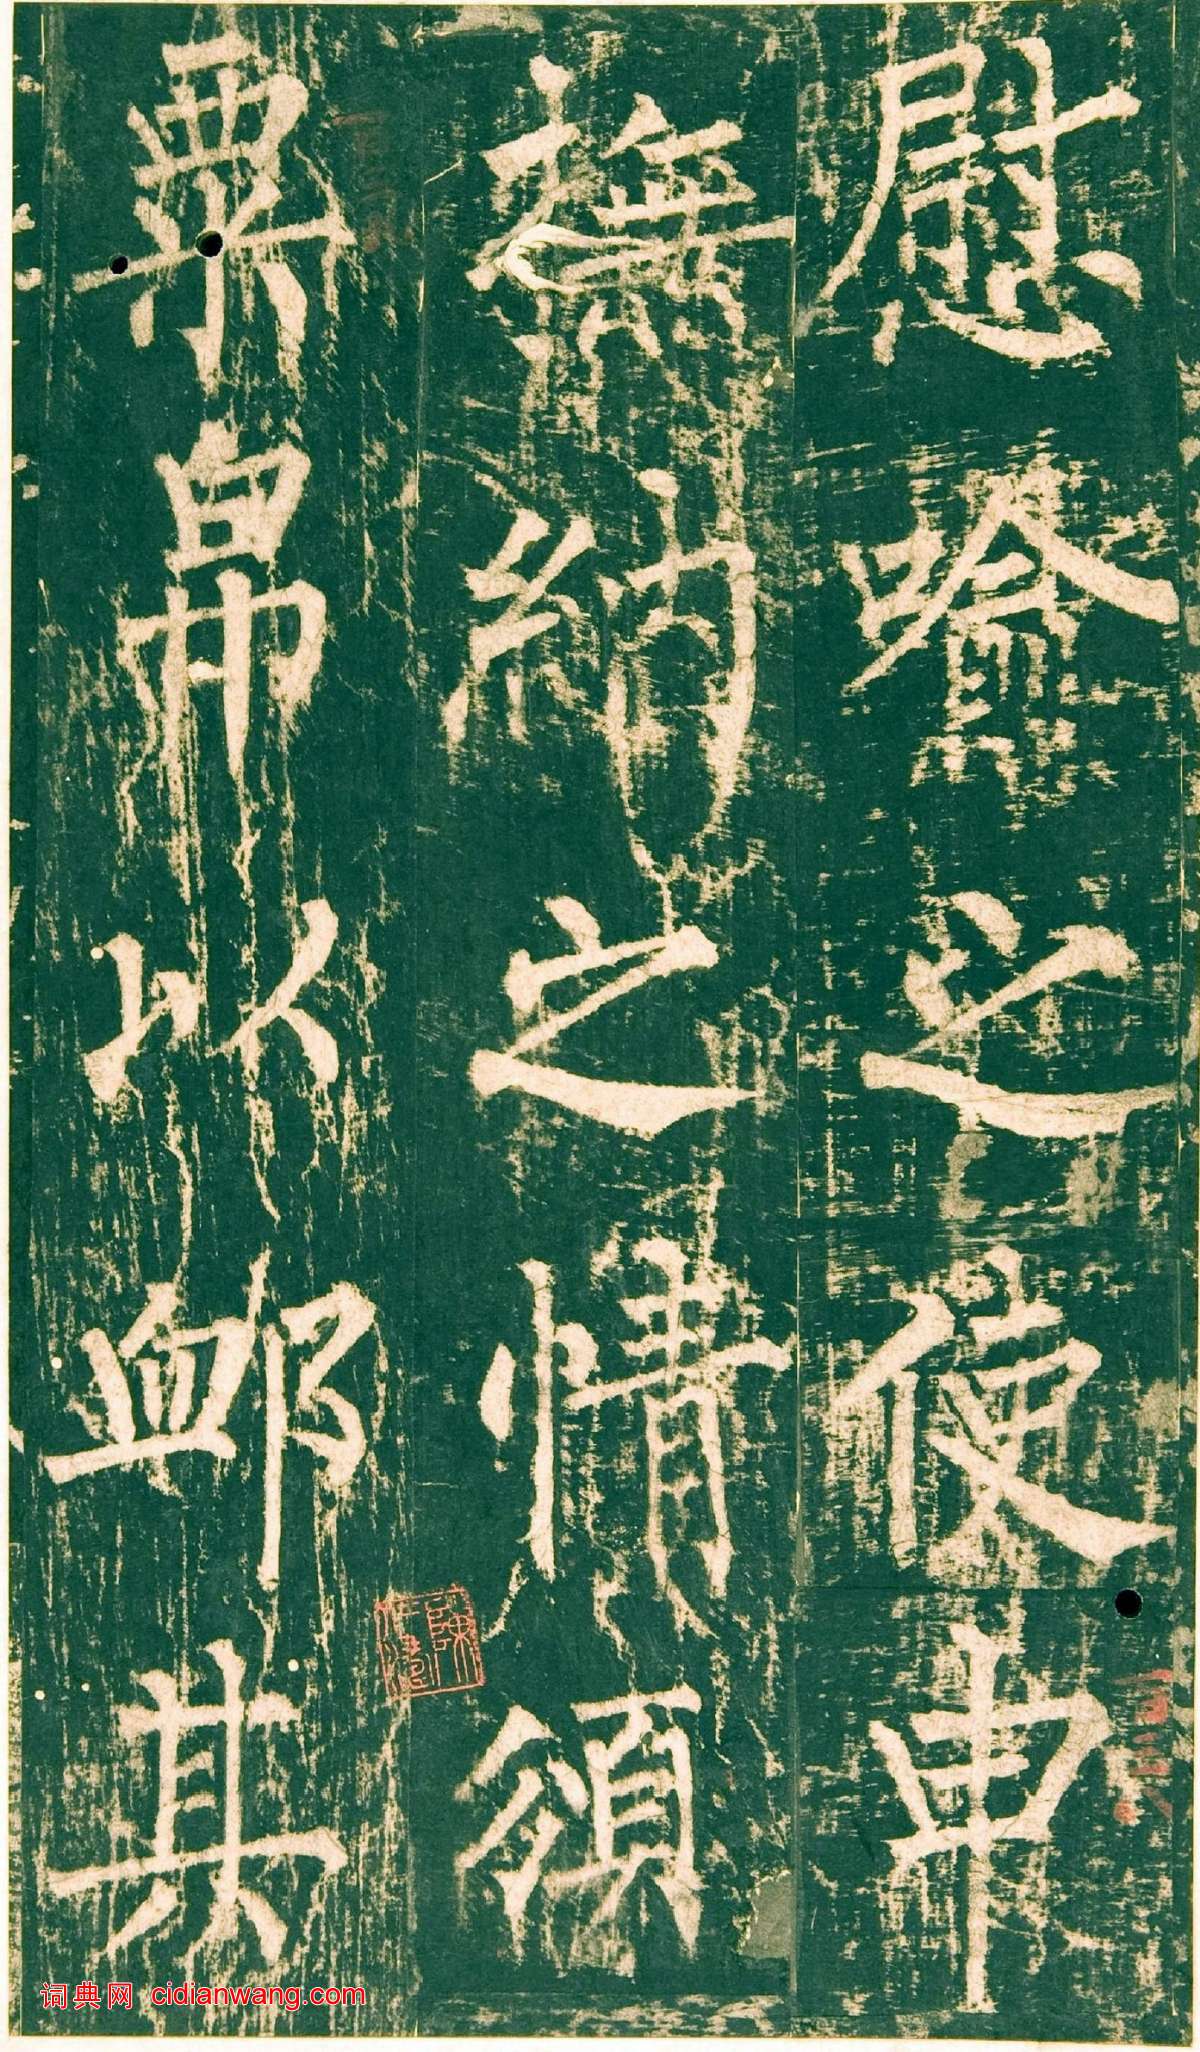 慰喻之使申
撫納之情領
粟帛以卹其
词典网 cidianwang.com